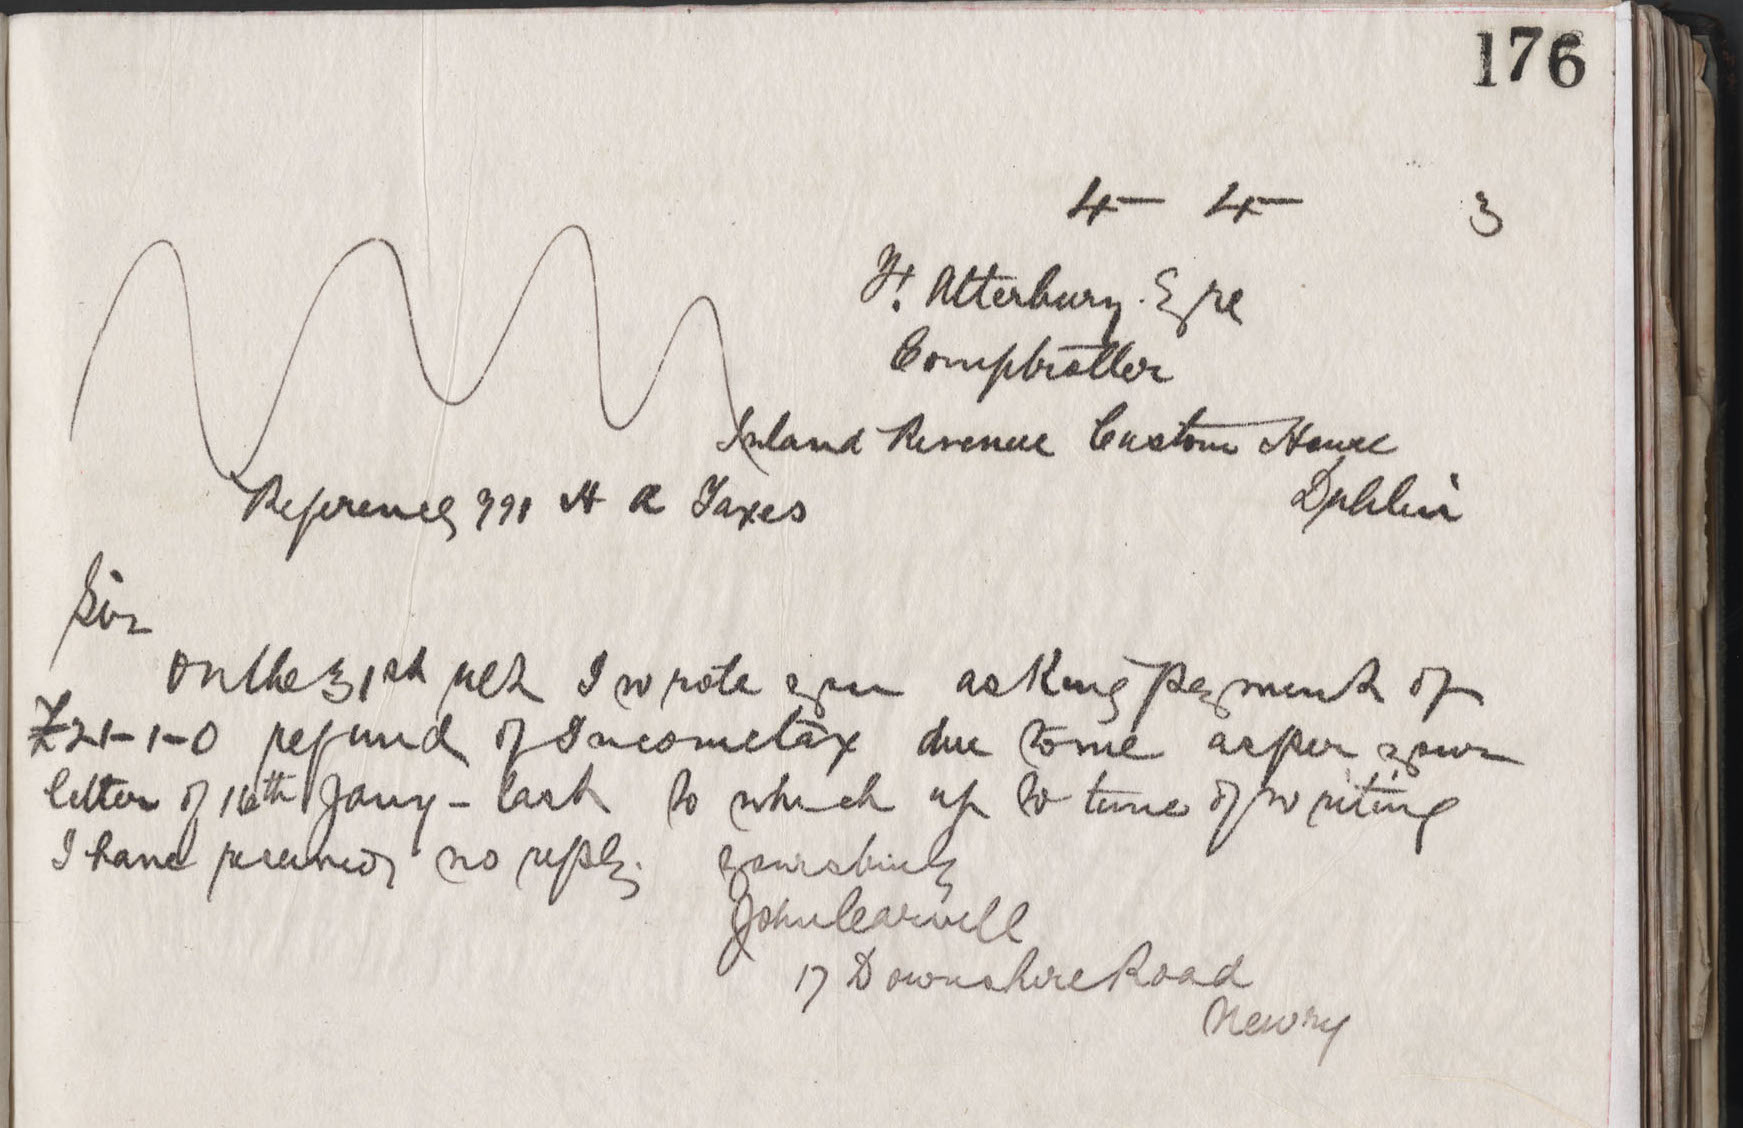 176
4 - 4 - 3
H. Atterbury. Esqre
Comptroller
Inland Revenue Custom House
Dublin
Reference 391 H R Taxes
Sir
On the 31st ult I wrote you asking payment of
£21-1-0 refund of Income tax due to me as per your
letter of 16th Jany - last to which up to time of writing
I have received no reply.
yours truly
John Carvill
17 Downshire Road
Newry